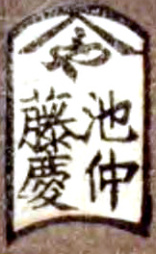 や
池仲
藤慶